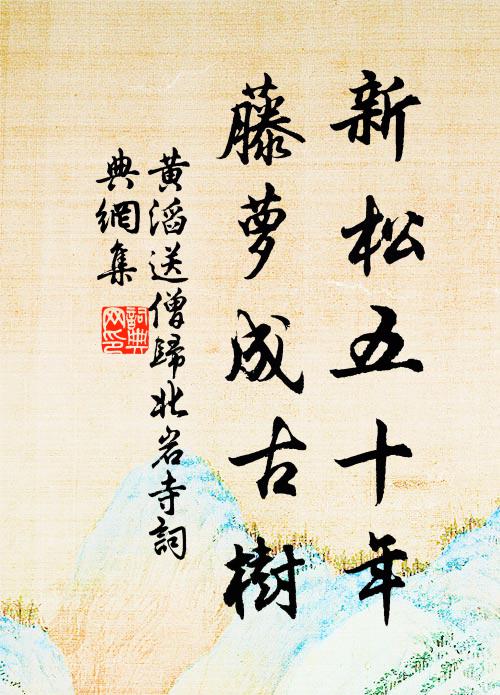 新松五十年
藤萝成古樹
黄滔送僧歸北岩寺詞
典網集
詞典
网印